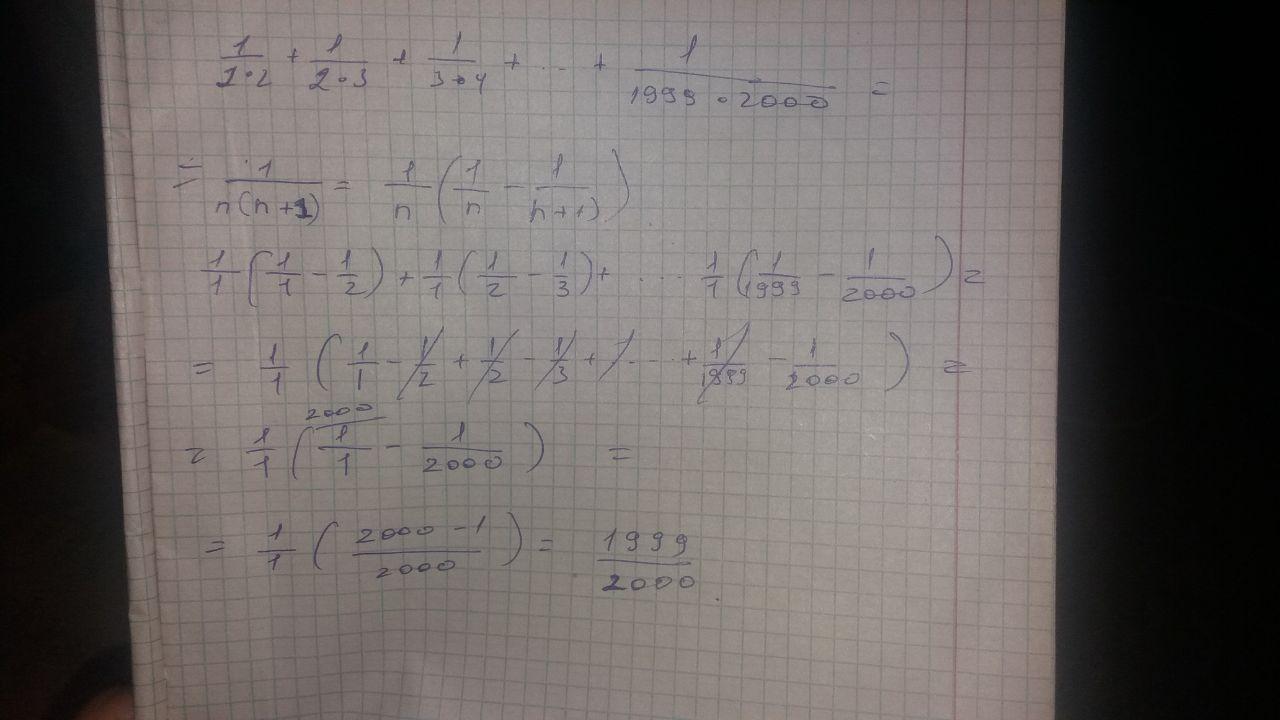 1/(1·2) + 1/(2·3) + 1/(3·4) + ... + 1/(1999·2000) =
= 1/(n(n+1)) = 1/n (1/n - 1/(n+1))
1/1 (1/1 - 1/2) + 1/1 (1/2 - 1/3) + ... 1/1 (1/1999 - 1/2000) =
= 1/1 (1/1 - 1/2 + 1/2 - 1/3 + ... + 1/1999 - 1/2000) =
2000
= 1/1 (1/1 - 1/2000) =
= 1/1 ((2000-1)/2000) = 1999/2000